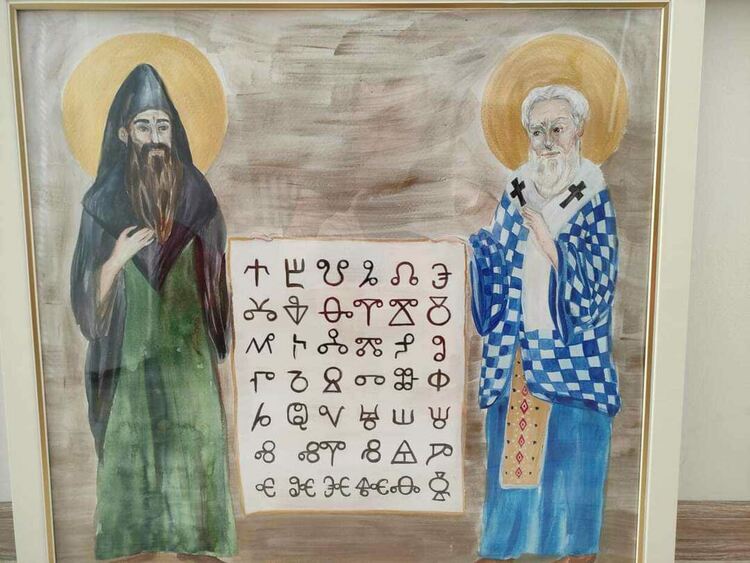 Ⰰ Ⰱ Ⰲ Ⰳ Ⰴ Ⰵ
Ⰶ Ⰷ Ⰸ Ⰹ Ⰺ Ⰻ
Ⰼ Ⰽ Ⰾ Ⰿ Ⱀ Ⱁ
Ⱂ Ⱃ Ⱄ Ⱅ Ⱆ Ⱇ
Ⱈ Ⱉ Ⱌ Ⱍ Ⱎ Ⱋ
Ⱏ ⰟⰉ Ⱐ Ⱑ Ⱓ
Ⱔ Ⱗ Ⱘ Ⱙ Ⱚ Ⱛ